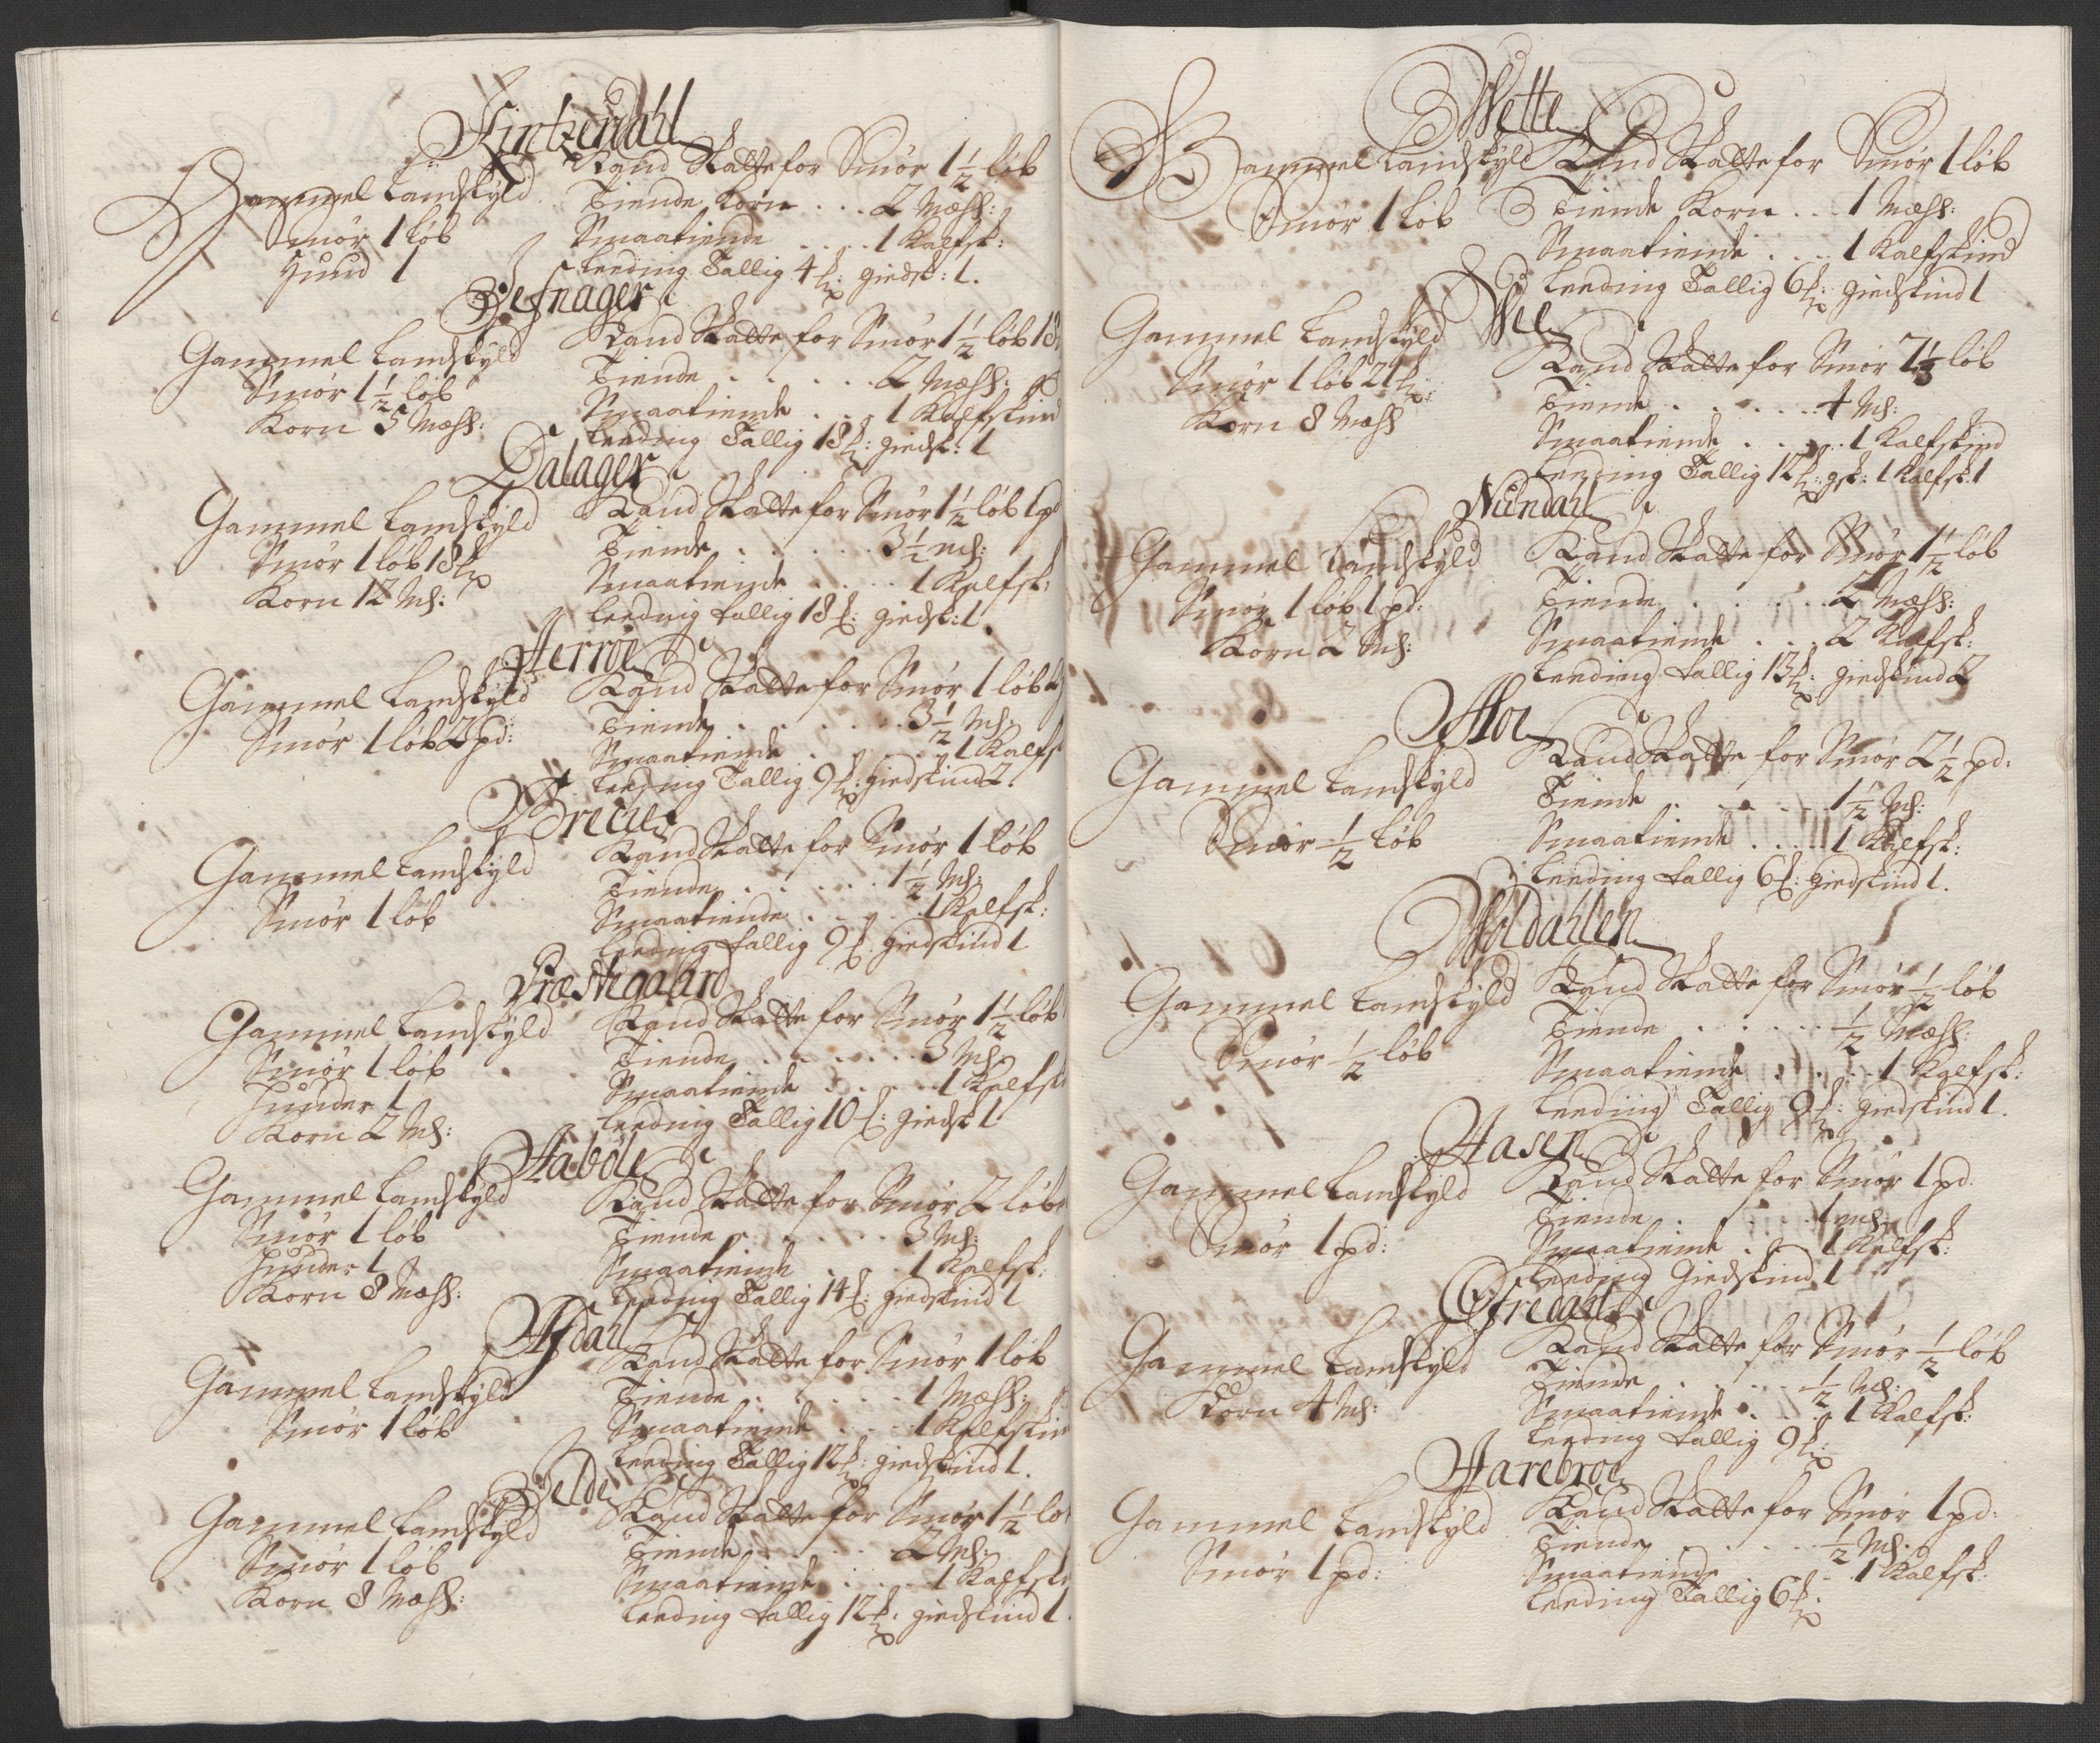 Fintzendahl
Gammel Landskyld
Smør 1 løb
Huud 1
Rand Skatte for Smør 1 1/2 løb
Tiende Korn . . . 2 Mæss:
Smaatiende . . . . 1 Kalfsk:
Leeding Tallig 4 : giedsk: 1.
Gammel Landskyld
Smør 1 1/2 løb
Korn 5 Mæss:
Rand Skatte for Smør 1 1/2 løb 18
Tiende . . . . . 2 Mæss:
Smaatiende . . . 1 Kalfskind
Leeding Tallig 18 : giedsk: 1
Dalager
Gammel Landskyld
Smør 1 løb 18
Korn 12 Ms:
Rand Skatte for Smør 1 1/2 løb 1 pd
Tiende . . . . . 3 1/2 ms:
Smaatiende . . . . 1 Kalfsk:
Leeding tallig 18 : giedsk: 1.
Gammel Landskyld
Smør 1 løb 2 pd:
Rand Skatte for Smør 1 løb
Tiende . . . . . . 3 1/2 Ms:
Smaatiende . . . . . 1 Kalfs
Leeding Tallig 9 : giedskind 2.
Gammel Landskyld
Smør 1 løb
Rand Skatte for Smør 1 løb
Tiende . . . . . 1 1/2 Ms:
Smaatiende . . . . 1 Kalfsk:
Leeding tallig 9 : giedskind 1
Præstegaard
Gammel Landskyld
Smør 1 løb
Huuder 1
Korn 2 Ms:
Rand Skatte for Smør 1 1/2 løb
Tiende . . . . . . 3 Ms:
Smaatiende . . . . . 1 Kalfsk
Leeding Tallig 10 : giedsk 1
Aaböle
Gammel Landskyld
Smør 1 løb
Huuder 1
Korn 8 Mæss:
Rand Skatte for Smør 2 løb
Tiende . . . . . . 3 Ms:
Smaatiende . . . 1 Kalfsk:
Leeding Tallig 14 : giedskind 1
Afdall
Gammel Landskyld
Smør 1 løb
Rand Skatte for Smør 1 løb
Tiende . . . . . 1 Mæss:
Smaatiende . . . 1 Kalfskin
Leeding Tallig 12 : giedskind 1.
Gielde
Gammel Landskyld
Smør 1 løb
Korn 8 Mæss:
Rand Skatte for Smør 1 1/2 lø
Tiende . . . . . 2 Ms:
Smaatiende . . . . 1 Kalfsk
Leeding tallig 12 : giedskind 1.
Wette
Gammel Landskyld
Smør 1 løb
Rand Skatte for Smør 1 løb
Tiende Korn . . . 1 Mæss:
Smaatiende . . . . 1 Kalfskind
Leeding Tallig 6 : giedskind 1
Wee
Gammel Landskyld
Smør 1 løb 21
Korn 8 Mæss
Rand Skatte for Smør 7 1/3 løb
Tiende . . . . . . 4 Ms:
Smaatiende . . . . . 1 Kalfskind
Leeding Tallig 12 : gsk: 1 Kalfsk: 1
Nundall
Gammel Landskyld
Smør 1 løb 1 pd:
Korn 2 Ms:
Rand Skatte for Smør 1 1/2 løb
Tiende . . . . . 2 Mæss:
Smaatiende . . . 2 Kalfsk:
Leeding tallig 13 : giedskind 2
Moe
Gammel Landskyld
Smør 1/2 løb
Rand Skatte for Smør 2 1/2 pd:
Tiende . . . . . 1 1/2 Ms:
Smaatiende . . . . 1 Kalfsk:
Leeding tallig 6 : giedskind 1.
Woldahlen
Gammel Landskyld
Smør 1/2 løb
Rand Skatte for Smør 1/2 løb
Tiende . . . . . 1/2 Mæss:
Smaatiende . . . . 1 Kalfsk:
Leeding Tallig 9 : giedskind 1.
Aasen
Gammel Landskyld
Smør 1 pd:
Rand Skatte for Smør 1 pd.
Tiende . . . . . 1 ms:
Smaatiende . . . 1 Kalfsk:
Leeding Giedskind 1
Ofredahl
Gammel Landskyld
Korn 4 Ms:
Rand Skatte for Smør 1/2 løb
Tiende . . . . . 1/2 Ms:
Smaatiende . . . . 1 Kalfsk:
Leeding tallig 9 :
Aarebroe
Gammel Landskyld
Smør 1 pd:
Rand Skatte for Smør 1 pd:
Tiende . . . . . 1/2 Ms:
Smaatiende . . . . 1 Kalfsk:
Leeding Tallig 6 :